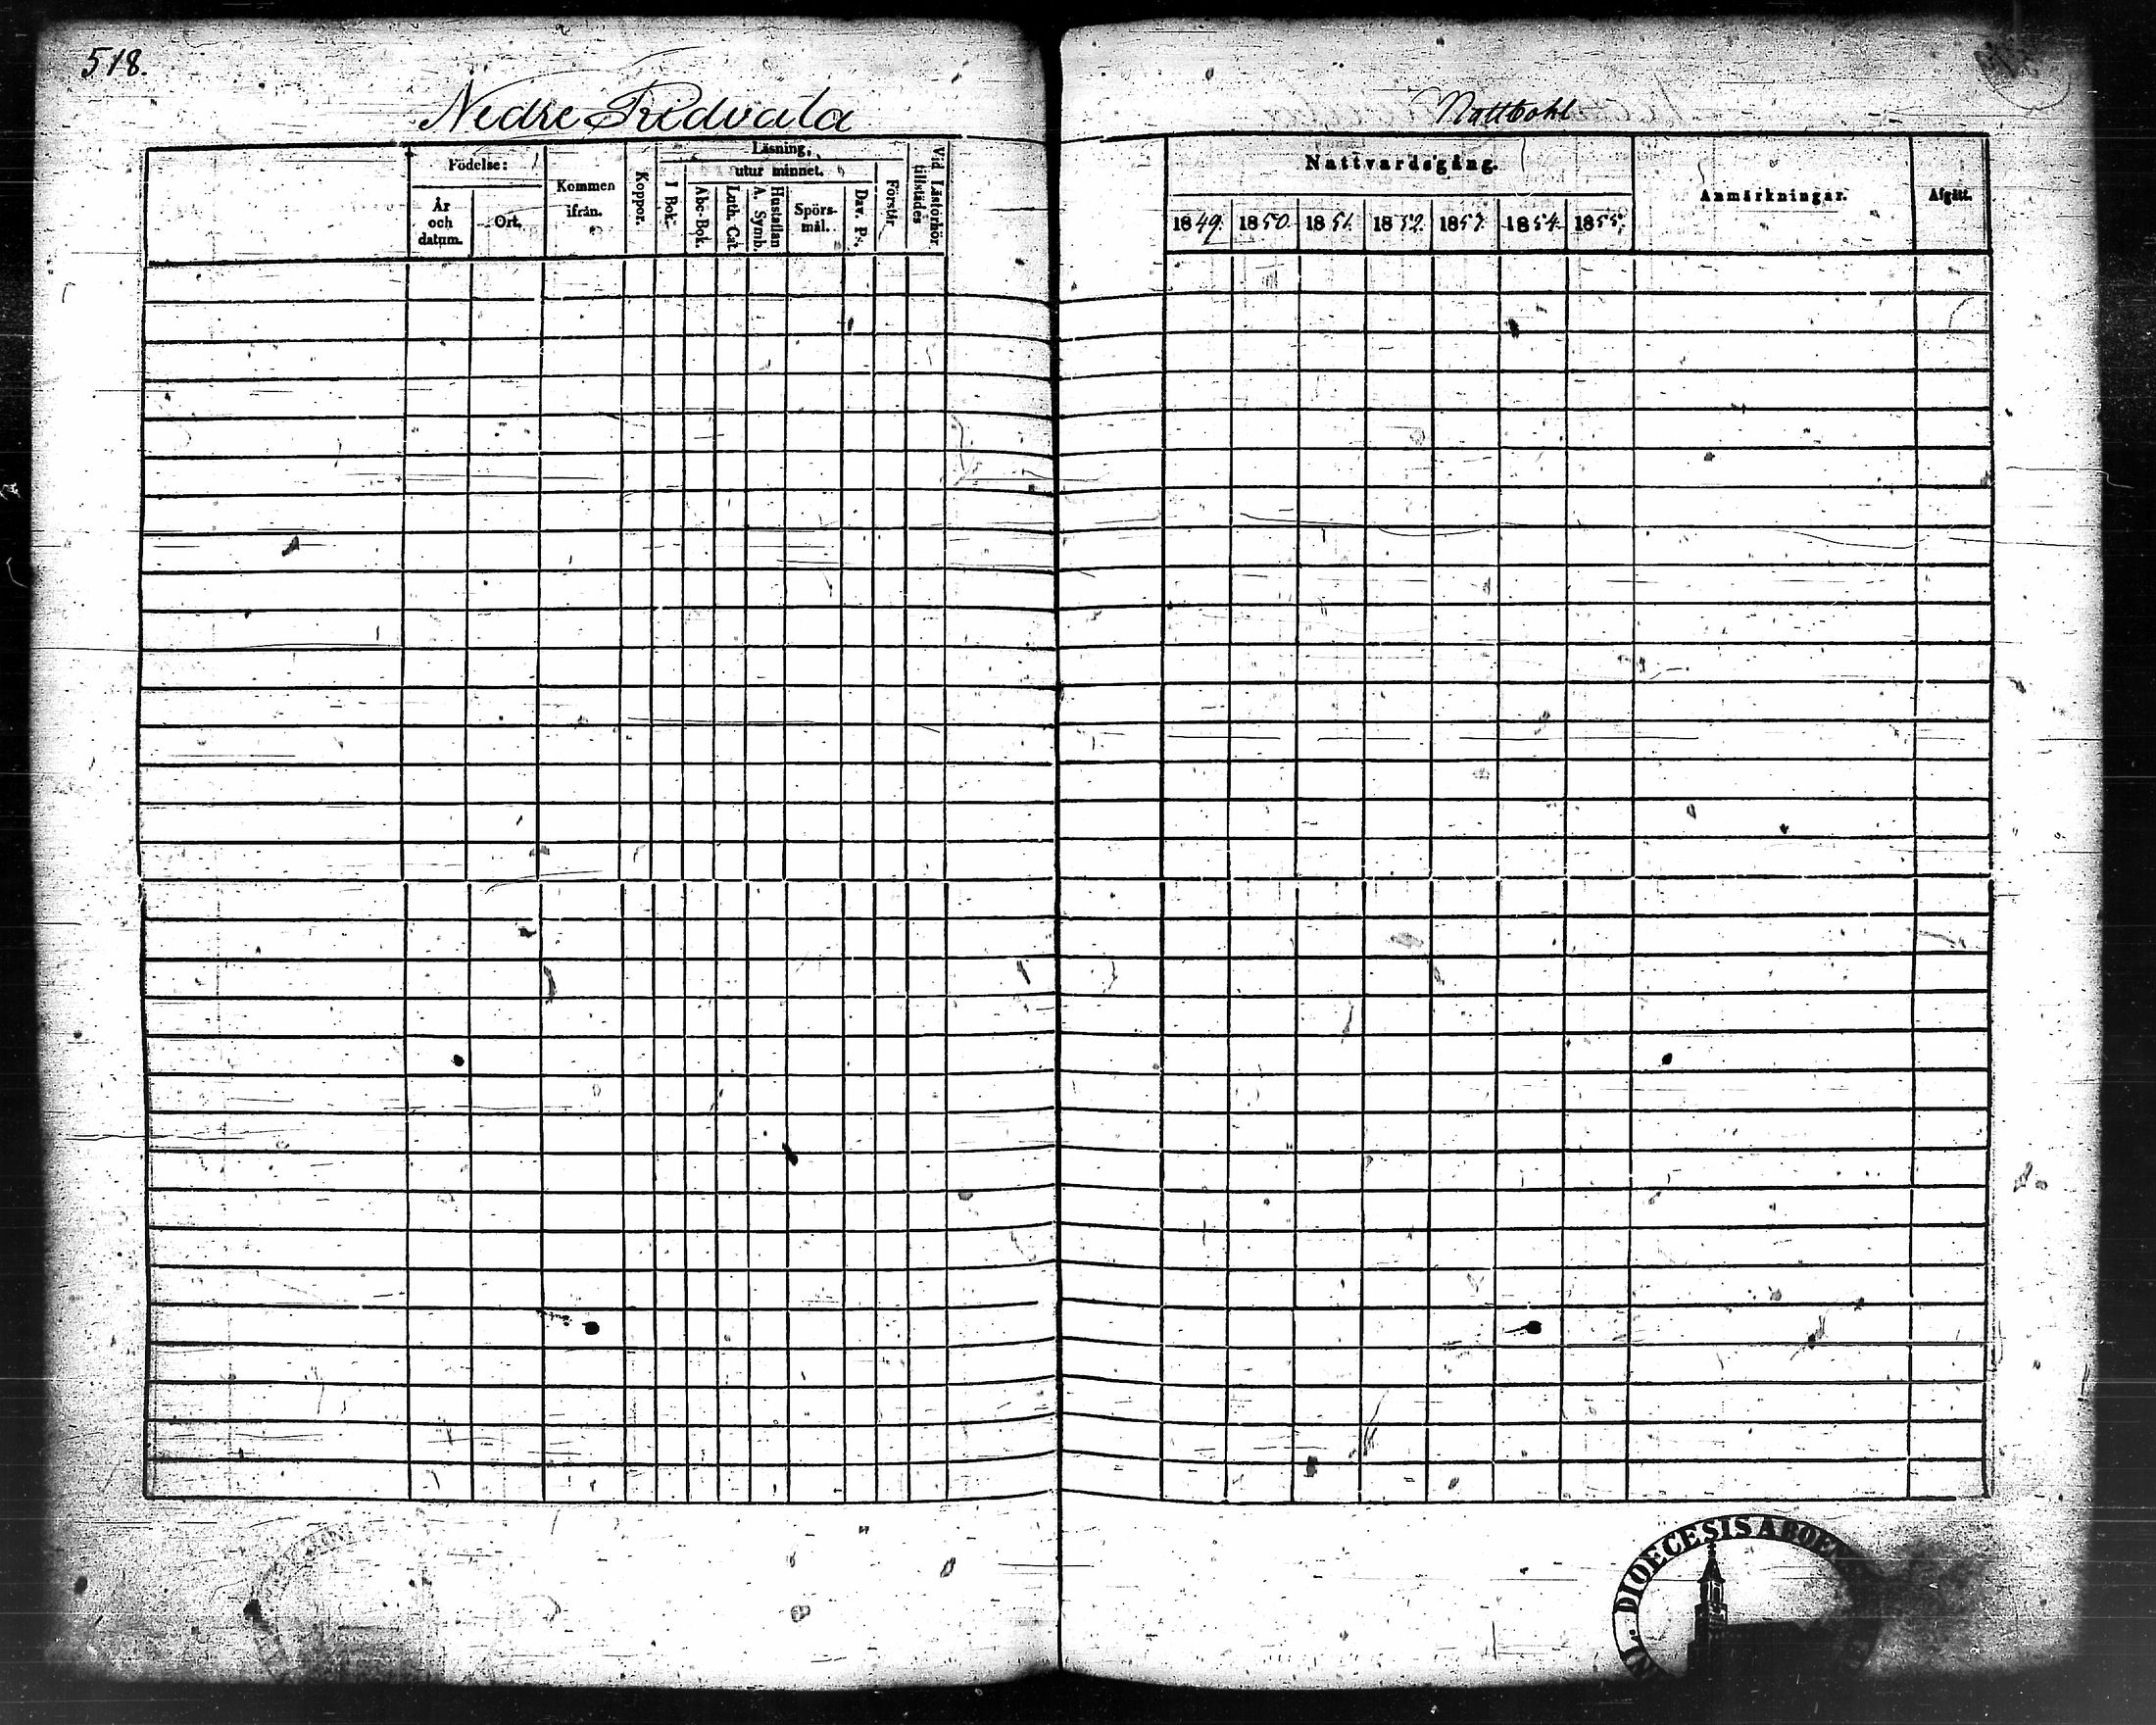 518.
Nedre Redvala
Nattbohl
Födelse:
År och datum.
Ort.
Kommen ifrån.
Koppor.
Läsning,
I Bok.
utur minnet.
Abc-Bok.
Luth. Cat.
Hustaflan A. Symb.
Spörs-mål.
Dav. Ps.
Förstår
Vid Läsförhör tillstädes
Nattvardsgång.
1849. 1850. 1851. 1852. 1853. 1854. 1855.
Anmärkningar.
Afgått.
DIOECESIS ABOE